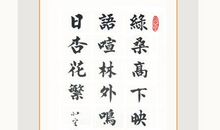 綠桑高下映
語喧林外鳴
日杏花繁